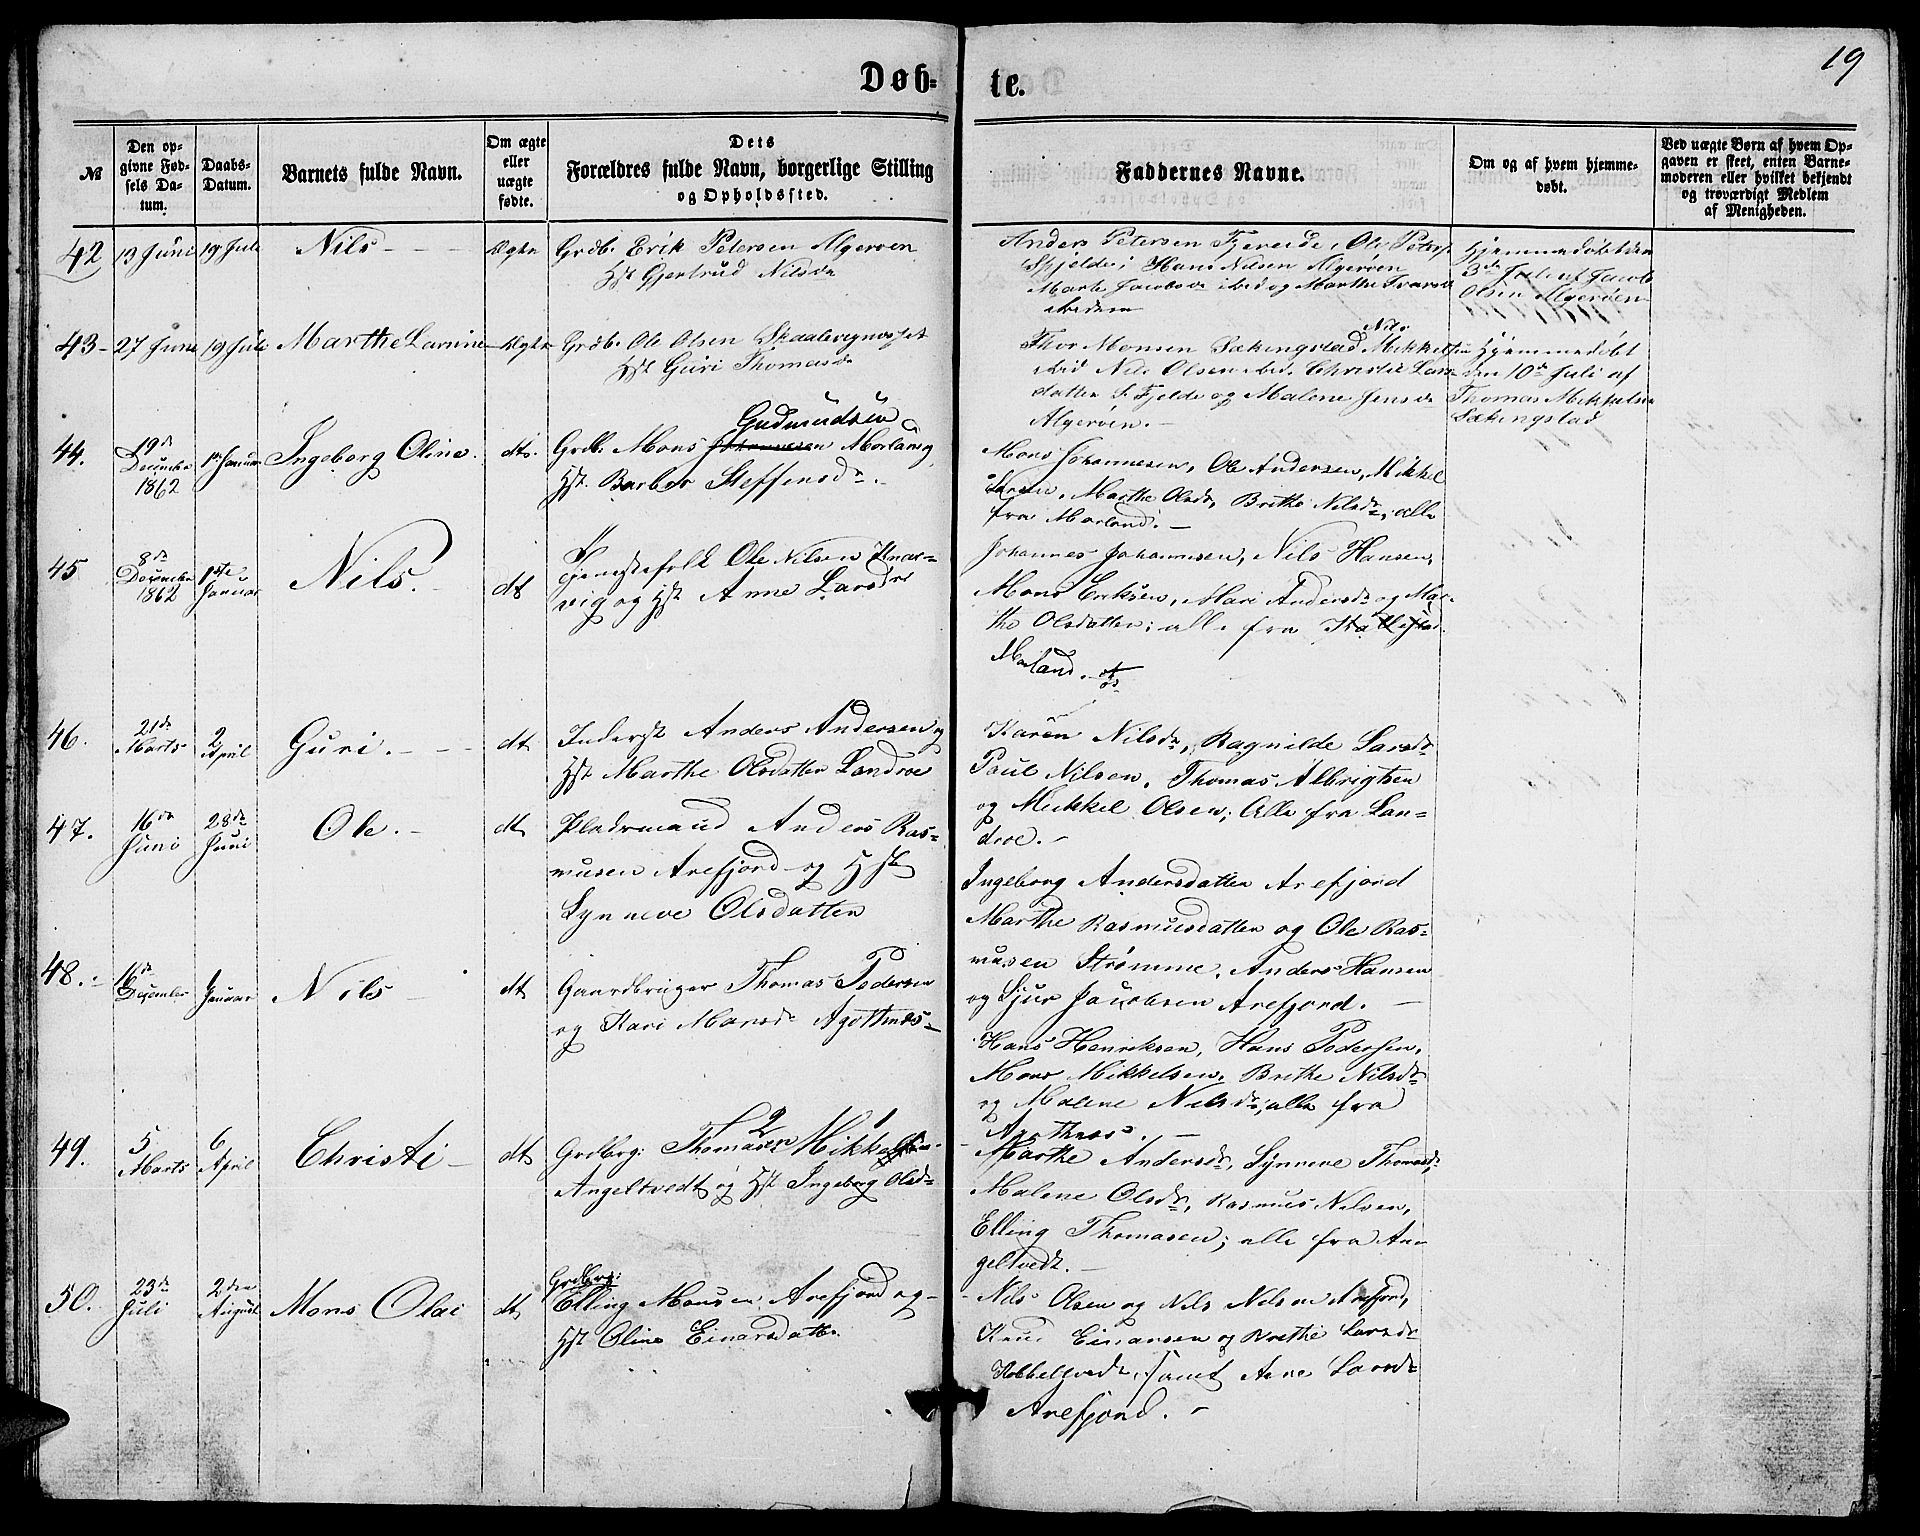 19
Døb-
te.
№
Den op-
givne Fød-
sels Da-
tum.
Daabs-
Datum.
Barnets fulde Navn.
Om ægte
eller
uægte
fødte.
Dets
Forældres fulde Navn, borgerlige Stilling
og Opholdssted.
Faddernes Navne.
Om og af hvem hjemme-
døbt.
Ved uægte Børn af hvem Op-
gaven er skeet, enten Barne-
moderen eller hvilket bekjendt
og troværdigt Medlem
af Menigheden.
42
13 Juni
19 Juli
Nils
Ægte
Grdb. Erik Petersen Algerøen
Hst Gjertrud Nilsdr
Anders Petersen Fjereide, Ole Peters
Spjelde; Hans Nilsen Algerøen
Marte Jacobsdr ibid og Marthe Ivarsdr
ibidem
Hjemmedøbt den
3de Juli af Jacob
Olsen Algerøen
43
27 Juni
19 Juli
Marthe Larine
Ægte
Grdb. Ole Olsen Skaalevignesset
Hst Guri Thomasdr
Thor Monsen Sækingstad Nils Mikkelsen
ibid Nils Olsen ibd. Christie Lars
datter S. Fjelde og Malene Jensdr
Algerøen.
Hjemmedøbt
den 10de Juli af
Thomas Mikkelsen
Sækingstad
44.
19de
December
1862
1ste Januar
Ingeborg Oline.
dto.
Gudmundsen
Grdb. Mons Johannesen Morland og
Hst. Barbro Steffensdr.
Mons Johannesen, Ole Andersen, Mikkel
Larsen, Marthe Olsdr, Brithe Nilsdr, alle
fra Morland.
45
8de
December
1862
1ste
Januar
Nils.
dt
Tjenestefolk Ole Nilsen Knar-
vig og Hst Anne Larsdr
Johannes Johannesen, Nils Hansen,
Mons Eriksen, Mari Andersdr og Mar-
the Olsdatter; alle fra
Morland.
46.
21de
Marts
2
April
Guri.
dt
Inderst Anders Andersen og
Hst Marthe Olsdatter Landroe
Karen Nilsdr, Ragnilde Larsdr
Paul Nilsen, Thomas Albrigtsen
og Mikkel Olsen; Alle fra Lan-
droe.
47.
16de
Juni
28de
Juni
Ole.
dt
Pladsmand Anders Ras-
musen Arefjord og Hst
Synneve Olsdatter
Ingeborg Andersdatter Arefjord
Marthe Rasmusdatter og Ole Ras-
musen Strømme, Anders Hansen
og Sjur Jacobsen Arefjord.
48.
16de
December
Januar
Nils
dt
Gaardbruger Thomas Pedersen
og Kari Monsdr Agotnes
Hans Henriksen, Hans Pedersen,
Mons Mikkelsen, Brithe Nilsdr
og Malene Nilsdr, alle fra
Agotnes.
49.
5
Marts
6
April
Christi
dt
Grdbrg: Thomasen Mikkel
Angeltvedt og Hst Ingeborg Olsdr
Marthe Andersdr, Synneve Thomasdr
Malene Olsdr, Rasmus Nilsen,
Elling Thomasen; alle fra An
geltvedt.
50.
23de
Juli
2den
August
Mons Olai
dt
Grdbrg:
Elling Monsen Arefjord og
Hst Oline Einarsdatter
Nils Olsen og Nils Nilsen Arefjord,
Knud Einarsen og Brethe Larsdr
Kobbeltvedt, samt Ane Larsdr
Arefjord.